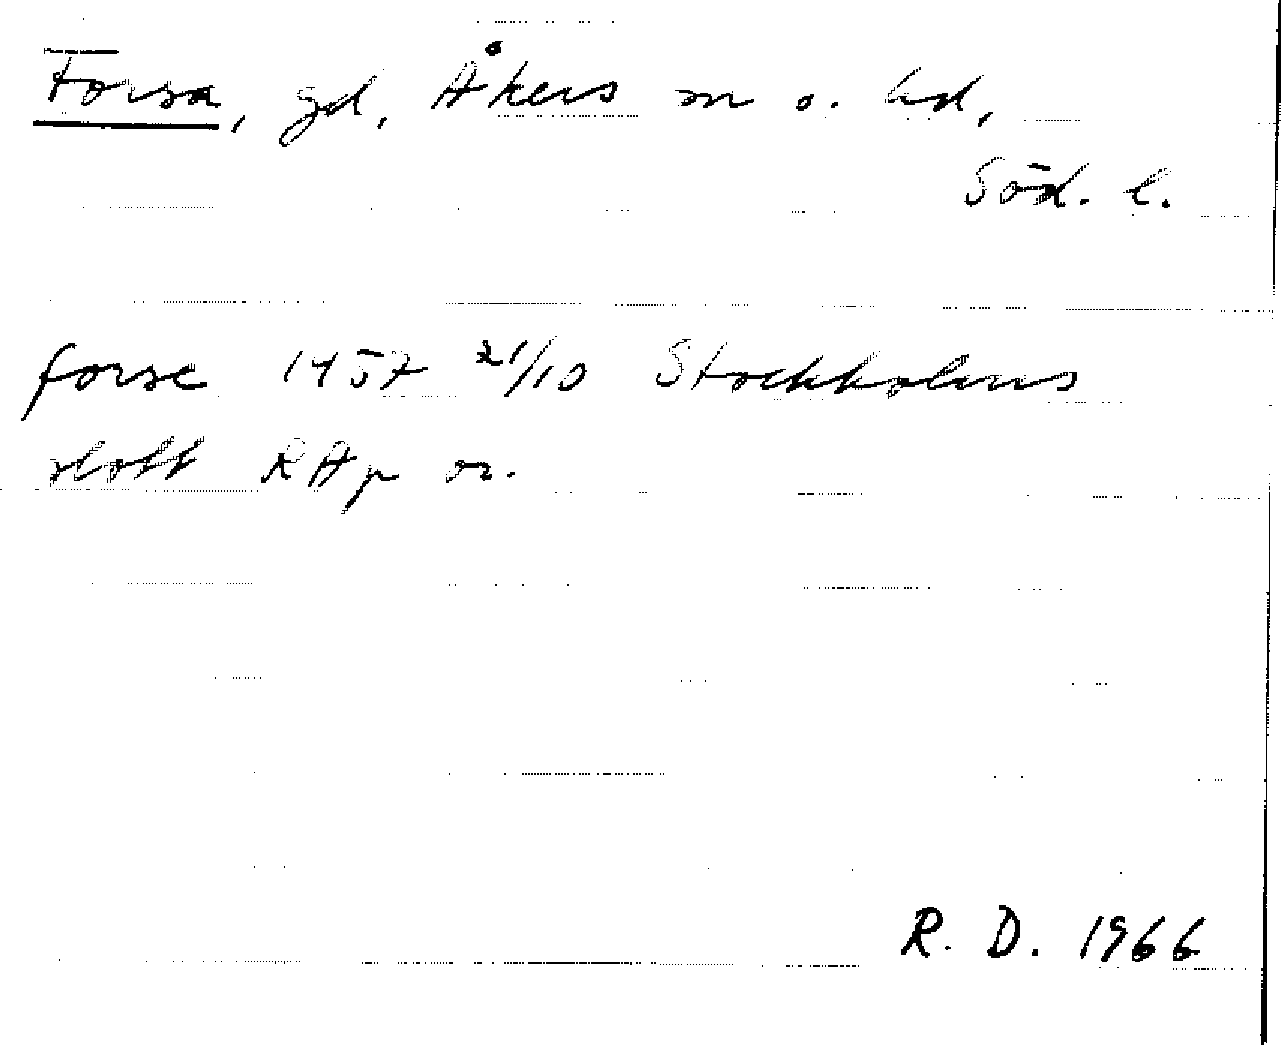 Forsa, gd, Åkers sn o. hd,
Söd. l.
forse 1457 21/10 Stockholms
slott RAp or.
R. D. 1966